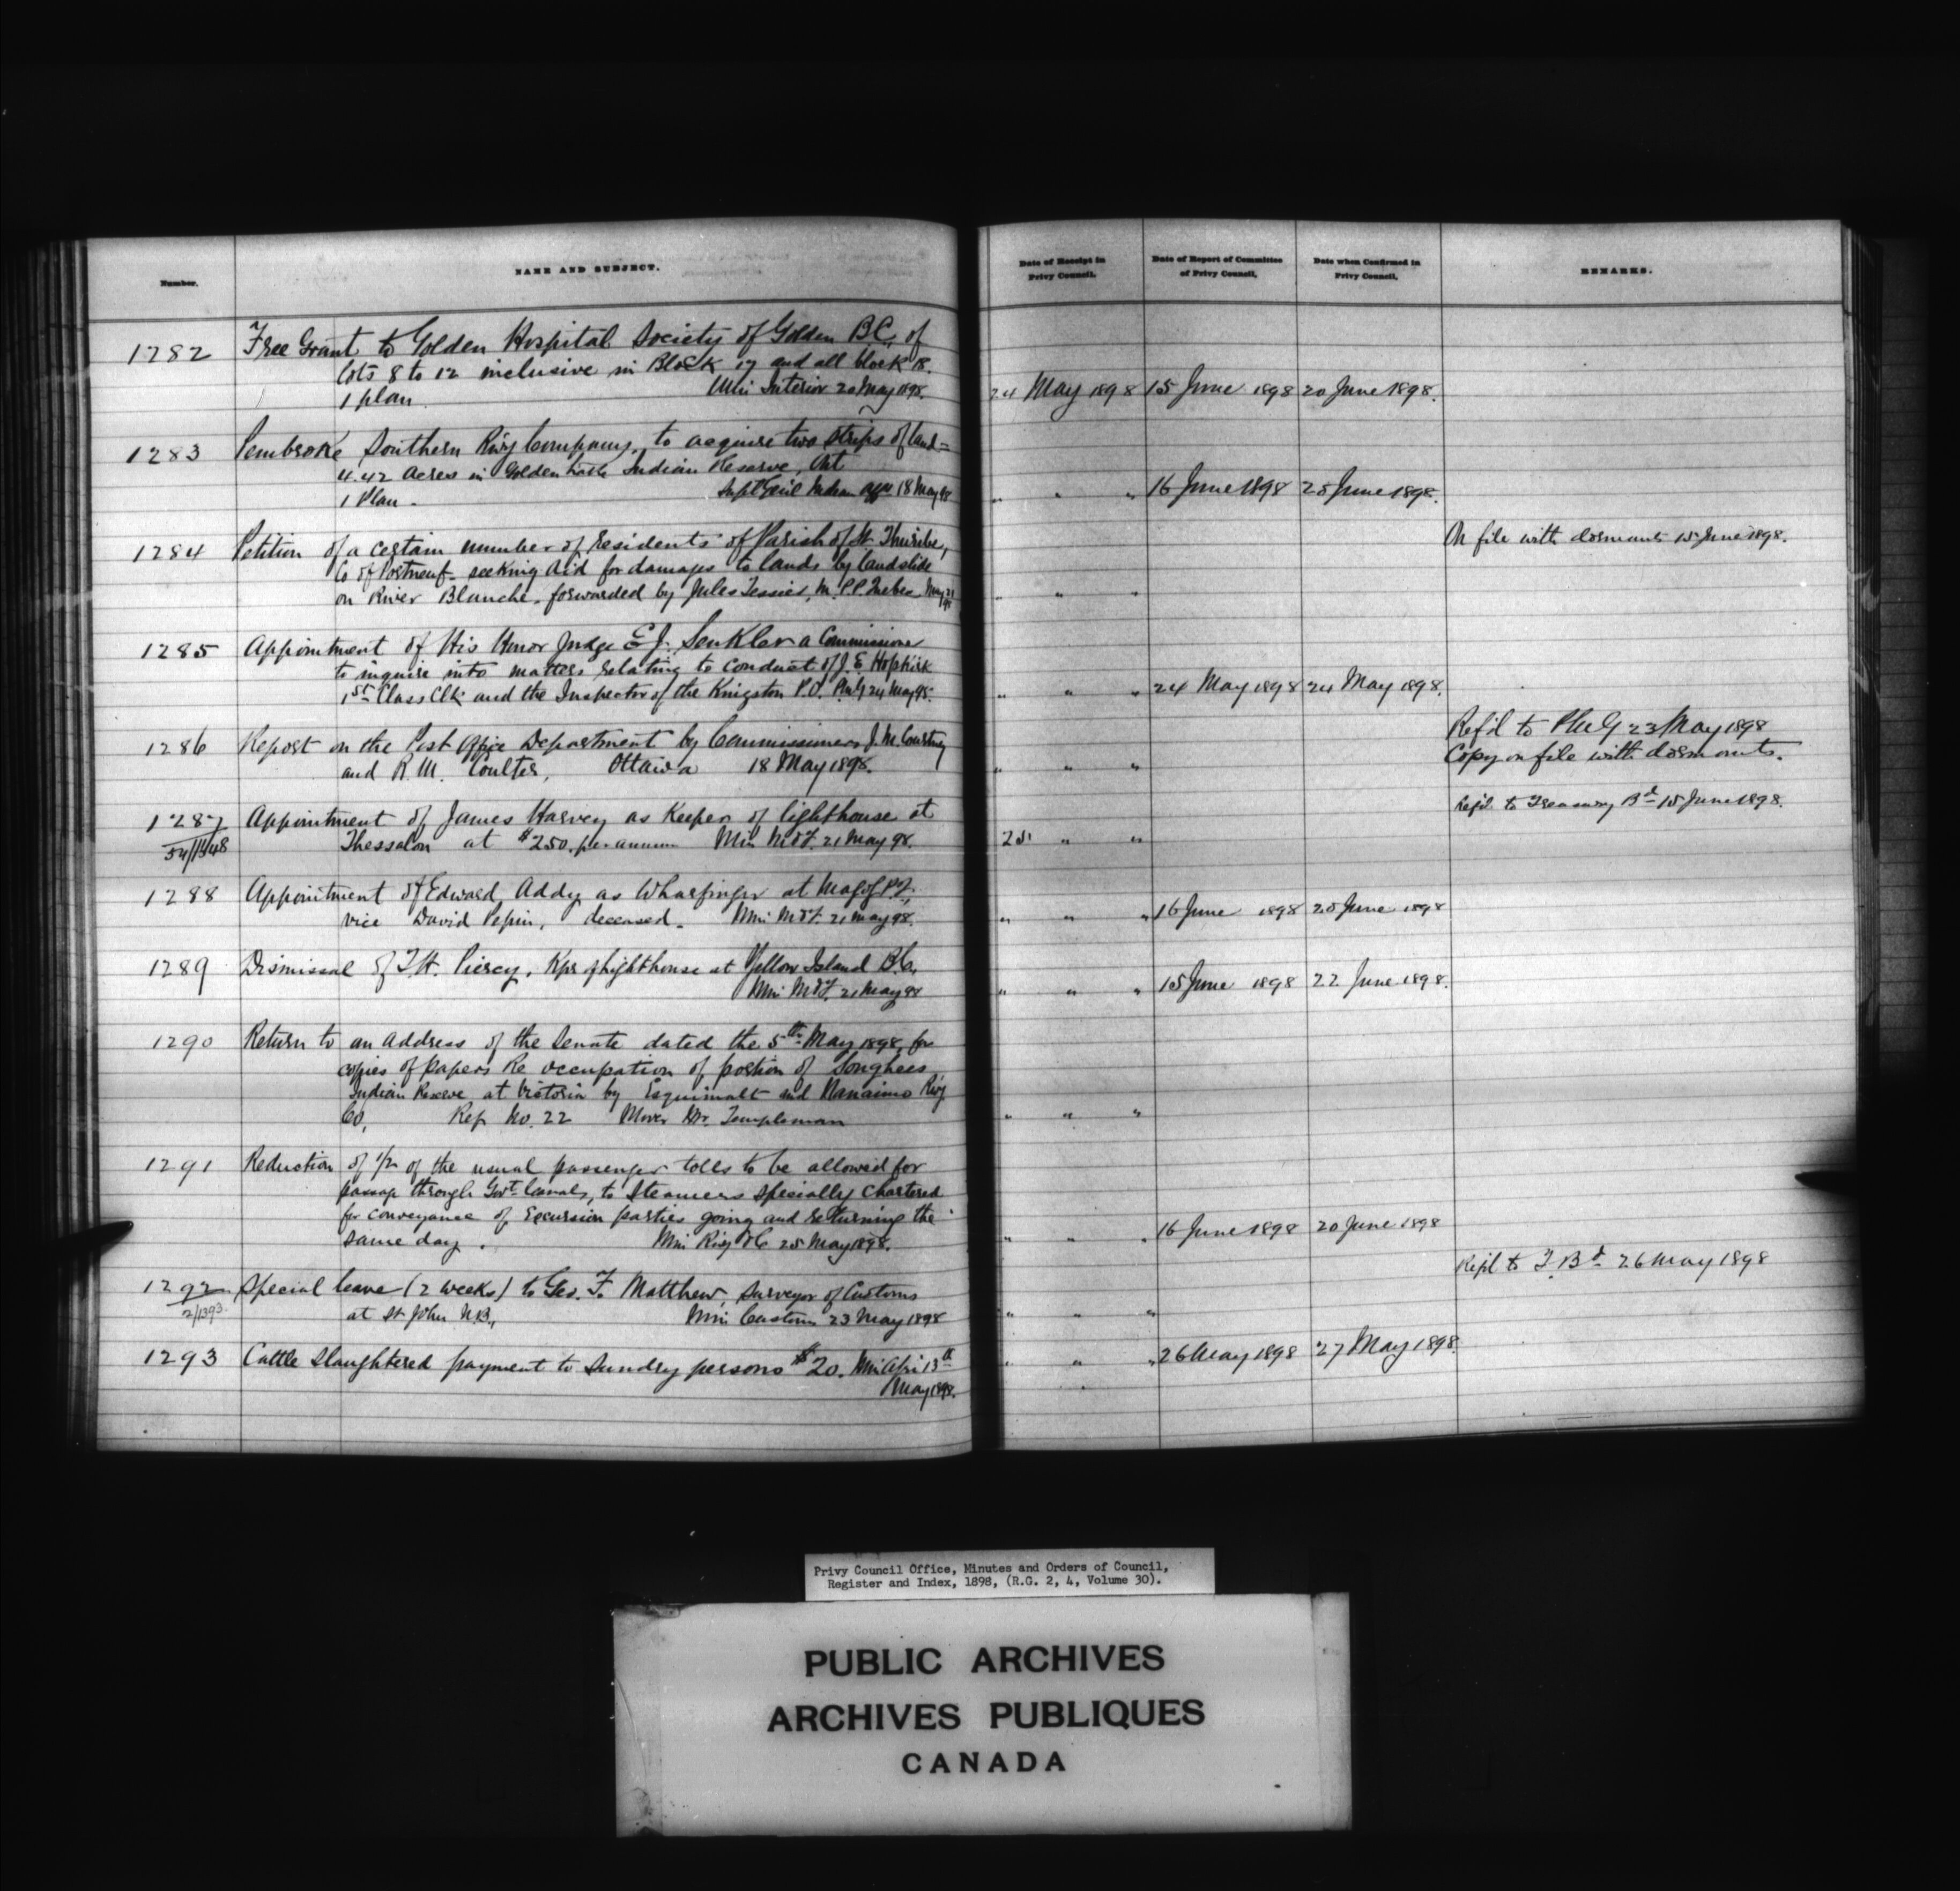 Number.
NAME AND SUBJECT.
Date of Receipt in Privy Council.
Date of Report of Committee of Privy Council.
Date when Confirmed in Privy Council.
REMARKS.
1282 Free Grant to Golden Hospital Society of Golden B.C. of
lots 8 to 12 inclusive in Block 17 and all block 18.
1 plan. Min Interior 20 May 1898. 24 May 1898 15 June 1898 20 June 1898.
1283 Pembroke Southern Rwy Company, to acquire two strips of land =
4.42 acres in Golden Lake Indian Reserve, Ont
1 Plan. Supt Genl Indian Affrs 18 May 98 " " " 16 June 1898 25 June 1898.
1284 Petition of a certain number of residents of Parish of St. Thuribe, On file with dormants 15 June 1898.
Co of Portneuf seeking aid for damages to lands by landslide
on River Blanche, forwarded by Jules Tessier, M.P.P. Quebec May 21 98 " " "
1285 Appointment of His Honor Judge E J. Senkler a Commissioner
to inquire into matters relating to conduct of J. E Hopkirk
1st Class Clk and the Inspector of the Kingston P.O. PMG 24 May 98. " " " 24 May 1898 24 May 1898.
1286 Report on the Post Office Department by Commissioners J. M. Courtney Refd to PMG 23 May 1898
and R. M. Coulter, Ottawa 18 May 1898. " " " Copy on file with dormants.
1287 Appointment of James Harvey as Keeper of lighthouse at Refd. to Treasury Bd 15 June 1898.
54/1548 Thessalon at $250. per annum Min M&F. 21 May 98. 25 " "
1288 Appointment of Edward Addy as Wharfinger at Magog P.Q,
vice David Pepin, deceased. Min M&F. 21 May 98. " " " 16 June 1898 25 June 1898
1289 Dismissal of T. H. Piercy, Kpr of lighthouse at Yellow Island B.C.
Min M&F. 21 May 98 " " " 15 June 1898 22 June 1898.
1290 Return to an Address of the Senate dated the 5th May 1898, for
copies of papers Re occupation of portion of Songhees
Indian Reserve at Victoria by Esquimalt and Nanaimo Rwy
Co, Ref No. 22 Mover Mr. Templeman " " "
1291 Reduction of 1/2 of the usual passenger tolls to be allowed for
passage through Govt Canals, to Steamers specially chartered
for conveyance of Excursion parties going and returning the
same day. Min Rwy & C 25 May 1898. " " " 16 June 1898 20 June 1898
1292 Special leave (2 weeks) to Geo. F. Matthew, Surveyor of Customs Refd to T. Bd 26 May 1898
2/1393. at St John N.B., Min Customs 23 May 1898 " " "
1293 Cattle slaughtered payment to Sundry persons $20. Min Agri 13th " " " 26 May 1898 27 May 1898.
May 1898.
Privy Council Office, Minutes and Orders of Council,
Register and Index, 1898, (R.G. 2, 4, Volume 30).
PUBLIC ARCHIVES
ARCHIVES PUBLIQUES
CANADA